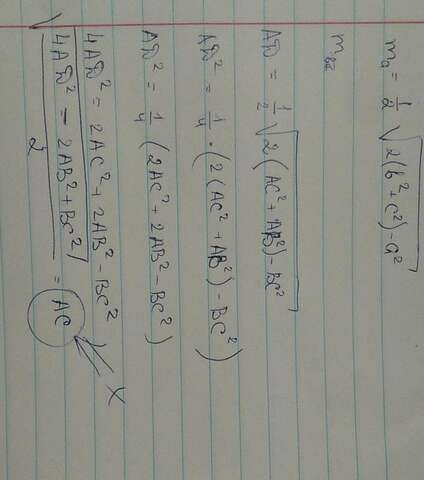 mₐ = 1/2 √(2(b² + c²) - a²)
AD = 1/2 √(2(AC² + AB²) - BC²)
AD² = 1/4 · (2(AC² + AB²) - BC²)
AD² = 1/4 (2AC² + 2AB² - BC²)
4AD² = 2AC² + 2AB² - BC²
√((4AD² - 2AB² + BC²)/2) = AC
X